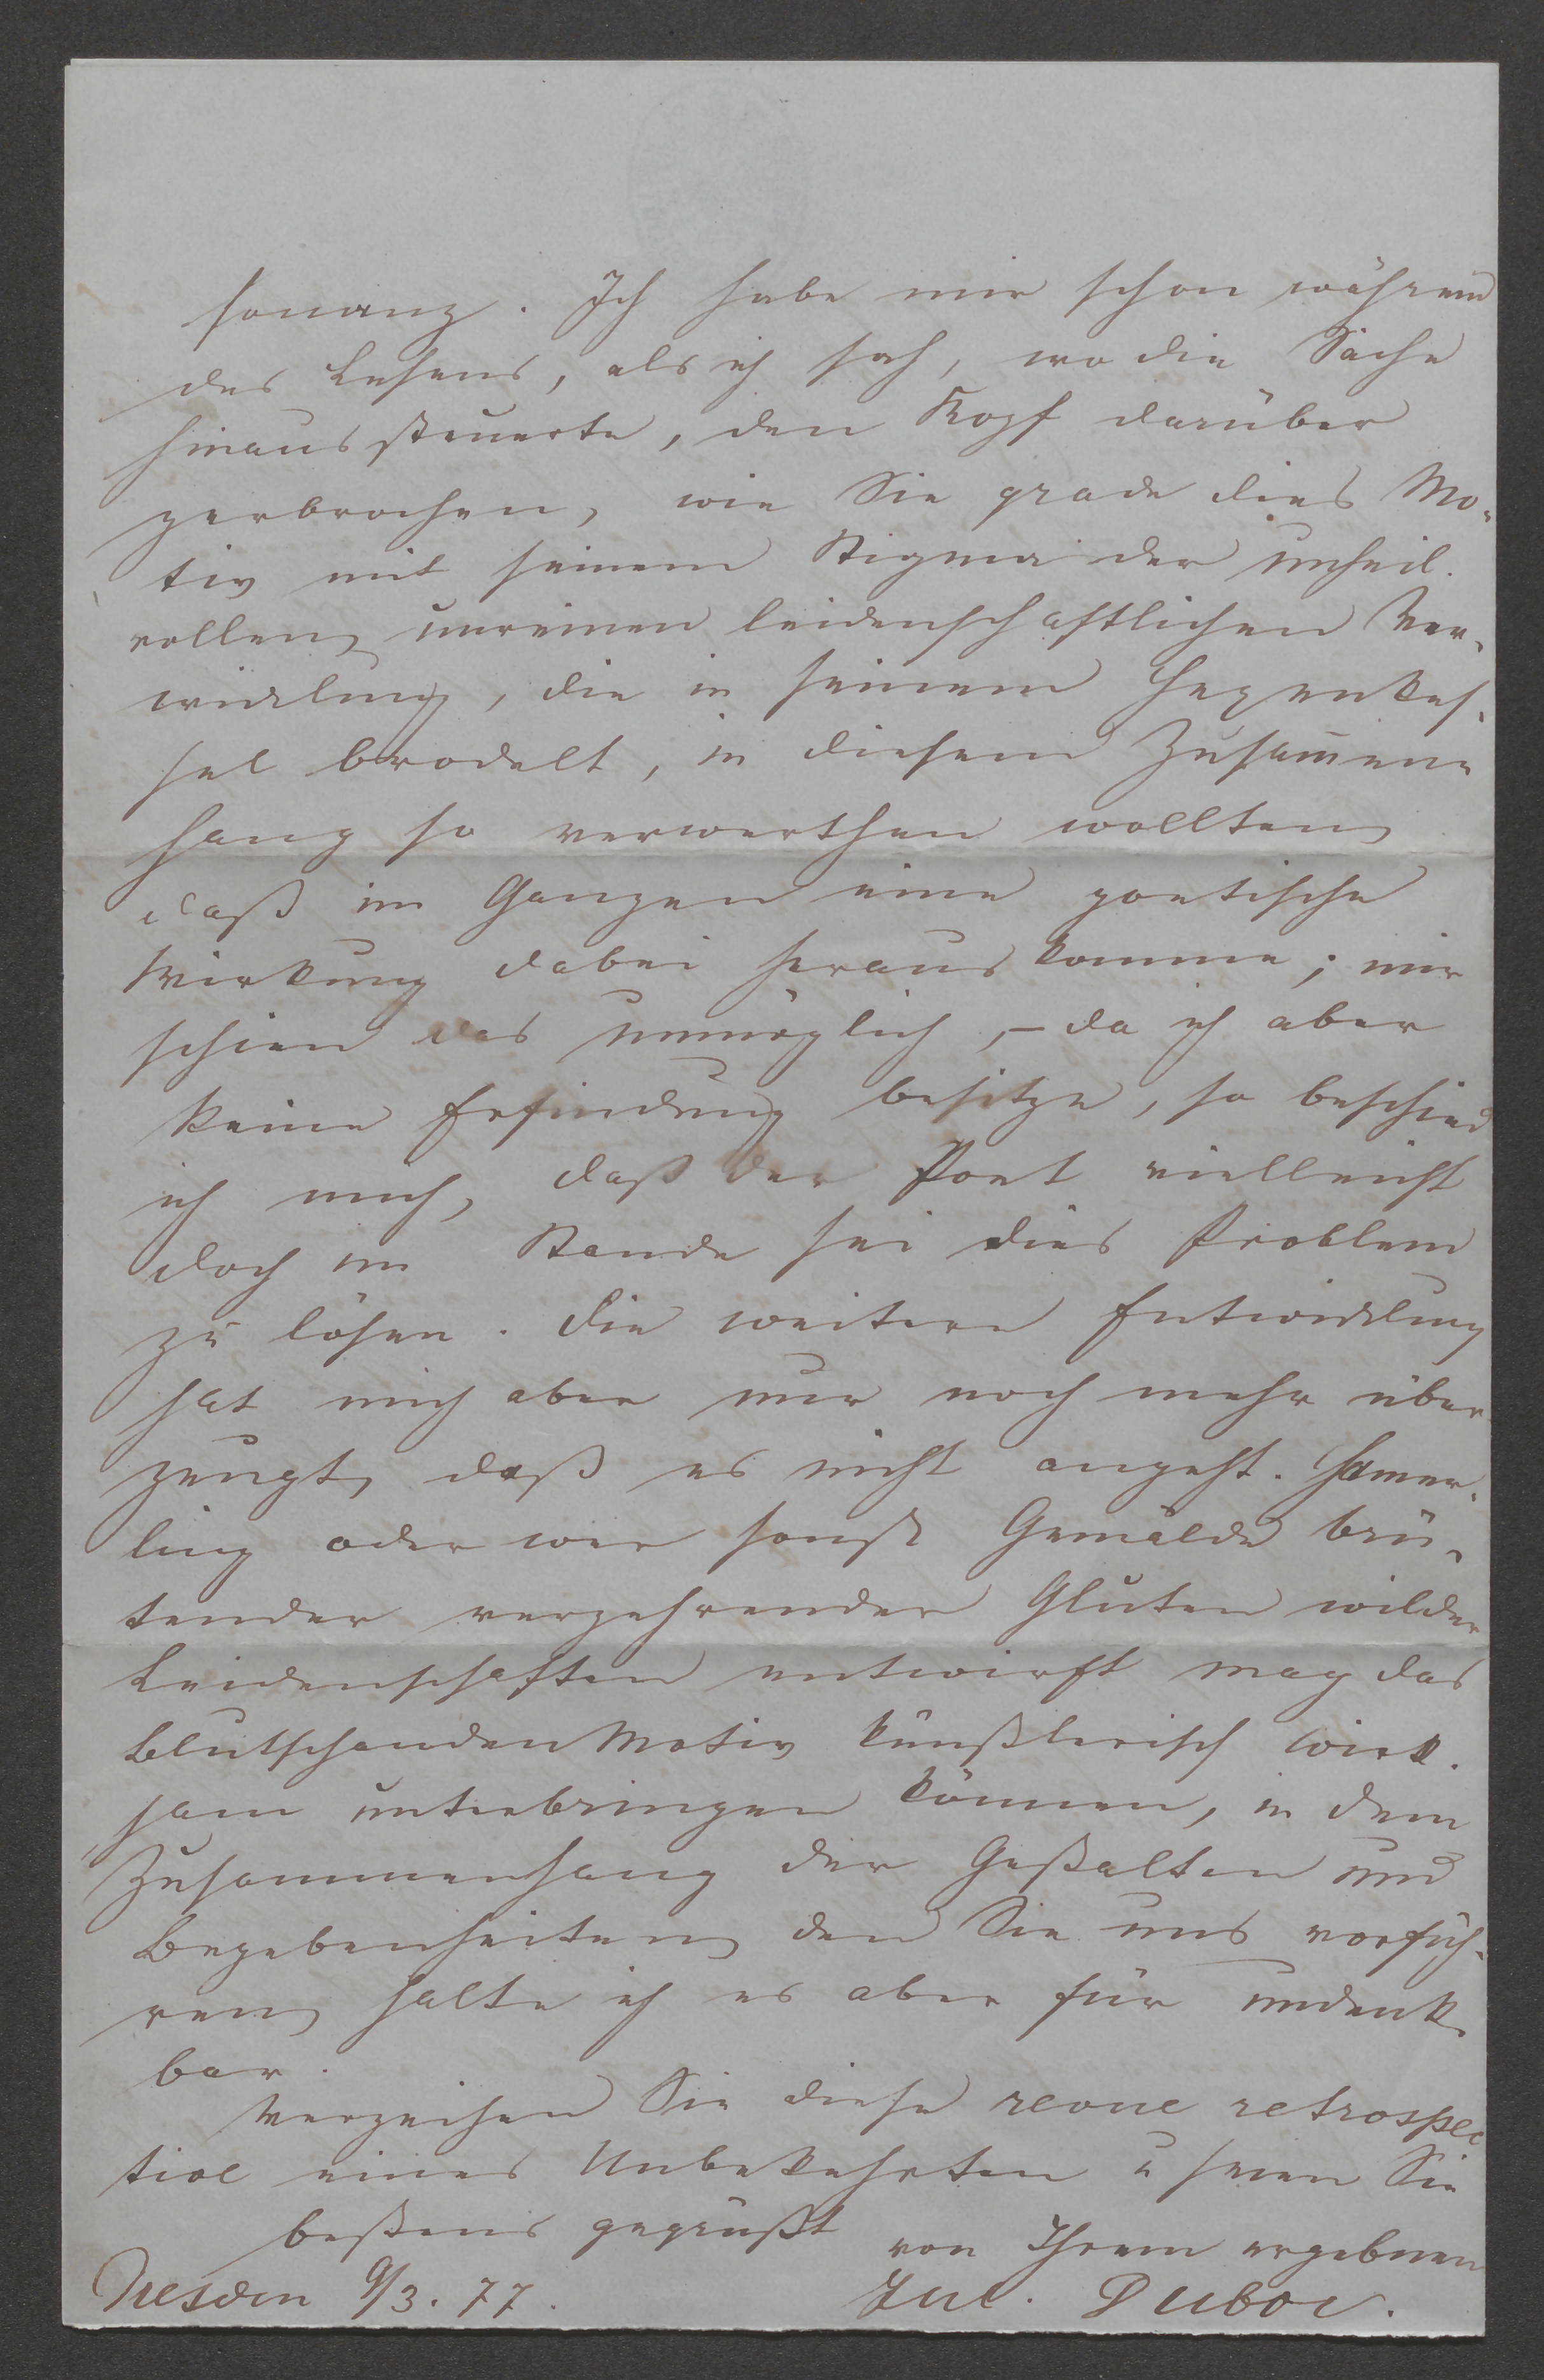 sonanz. Ich habe mir schon während
des Lesens, als ich sah, wo die Sache
hinaus steuerte, den Kopf darüber
zerbrochen, wie Sie grade dies Mo-
tiv mit seinem Stigma der unheil-
vollen, unreinen leidenschaftlichen Ver-
wicklung, die in seinem Hexenkes-
sel brodelt, in diesem Zusam̅en-
hang so verwerthen wollten,
daß im Ganzen eine poetische
Wirkung dabei heraus komme; mir
schien das unmöglich, – da ich aber
keine Erfindung besitze, so beschied
ich mich, daß der Poet vielleicht
doch im Stande sei dies Problem
zu lösen. Die weitere Entwicklung
hat mich aber nur noch mehr über
zeugt, daß es nicht angeht. Hamer-
ling oder wer sonst Gemälde brü-
tender verzehrender Gluten wilder
Leidenschaften entwirft mag das
Blutschanden Motiv künstlerisch wirk-
sam unterbringen können, in dem
Zusammenhang der Gestalten und
Begebenheiten, den Sie uns vorfüh-
ren, halte ich es aber für undenk-
bar.
Verzeihen Sie diese revue retrospec
tive eines Unbekehrten u seien Sie
bestens gegrüßt von Ihrem ergebnen
Dresden 9/3. 77. Jul. Duboc.